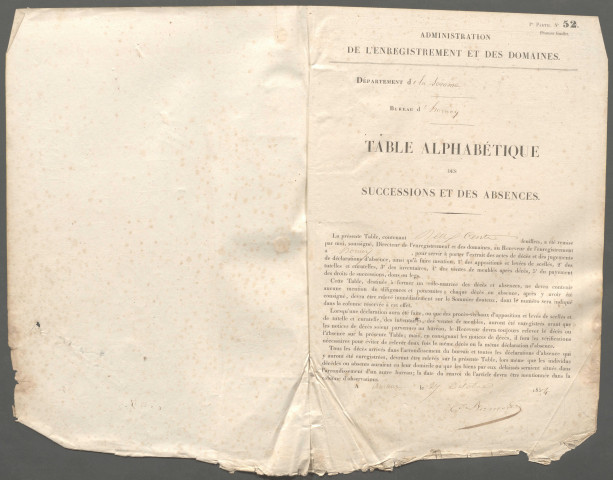 2e Partie. No 52.
ADMINISTRATION
DE L'ENREGISTREMENT ET DES DOMAINES.
DÉPARTEMENT de la Somme
BUREAU d
TABLE ALPHABÉTIQUE
DES
SUCCESSIONS ET DES ABSENCES.
La présente Table, contenant feuillets, a été remise
par moi, soussigné, Directeur de l'enregistrement et des domaines, au Receveur de l'enregistrement
à pour servir à porter l'extrait des actes de décès et des jugements
de déclarations d'absence, ainsi qu'à faire mention, 1o des appositions et levées de scellés, 2o des
tutelles et curatelles, 3o des inventaires, 4o des ventes de meubles après décès, 5o du payement
des droits de successions, dons ou legs.
Cette Table, destinée à former un relevé des décès et absences, ne devra contenir
aucune mention de diligences et poursuites; chaque décès ou absence, après y avoir été
consigné, devra être relevé immédiatement sur le Sommier douteux, dont le numéro sera indiqué
dans la colonne réservée à cet effet.
Lorsqu'une déclaration aura été faite, ou que des procès-verbaux d'apposition et levée de scellés et
de tutelle et curatelle, des inventaires, des ventes de meubles, auront été enregistrés avant que
les notices de décès soient parvenues au bureau, le Receveur devra toujours relever le décès ou
l'absence sur la présente Table; mais, en consignant les notices de décès, il fera les vérifications
nécessaires pour éviter de relever deux fois le même décès ou la même déclaration d'absence.
Tous les décès arrivés dans l'arrondissement du bureau et toutes les déclarations d'absence qui
y auront été enregistrées, devront être relevés sur la présente Table, lors même que les individus
décédés ou absents auraient eu leur domicile ou que les biens par eux délaissés seraient situés dans
l'arrondissement d'un autre bureau; la date du renvoi de l'article devra être mentionnée dans la
colonne d'observations.
A le 18